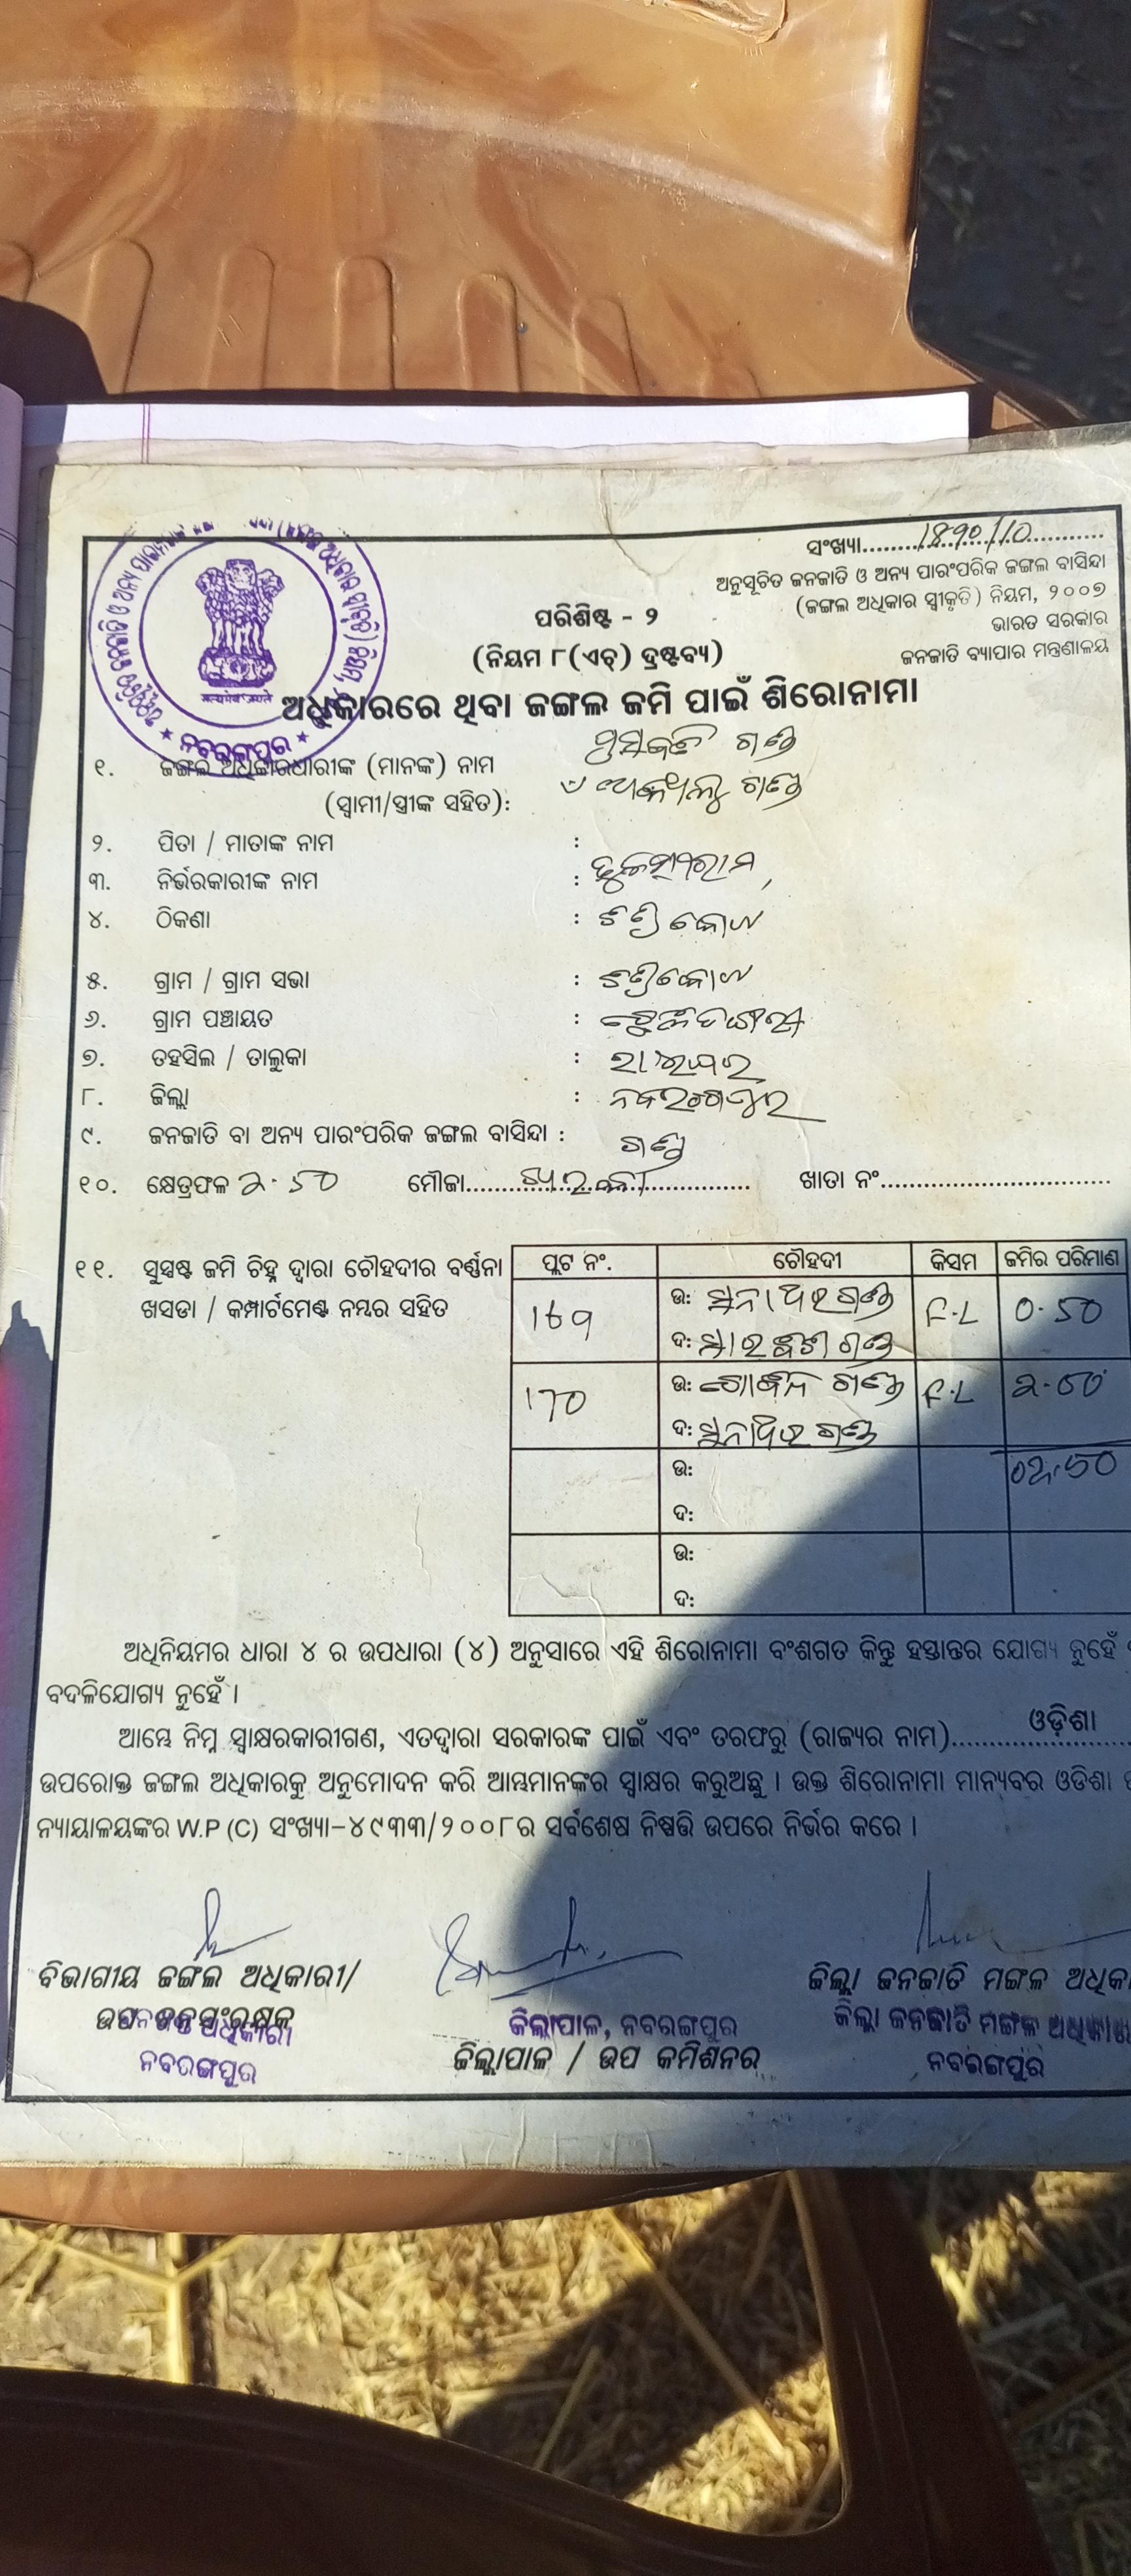 ସଂଖ୍ୟା..........1890/10..........
ଅନୁସୂଚିତ ଜନଜାତି ଓ ଅନ୍ୟ ପାରଂପରିକ ଜଙ୍ଗଲ ବାସିନ୍ଦା
(ଜଙ୍ଗଲ ଅଧିକାର ସ୍ୱୀକୃତି) ନିୟମ, ୨୦୦୭
ଭାରତ ସରକାର
ଜନଜାତି ବ୍ୟାପାର ମନ୍ତ୍ରଣାଳୟ
ପରିଶିଷ୍ଟ - ୨
(ନିୟମ ୮(ଏଚ୍) ଦ୍ରଷ୍ଟବ୍ୟ)
ଅଧିକାରରେ ଥିବା ଜଙ୍ଗଲ ଜମି ପାଇଁ ଶିରୋନାମା
ନବରଙ୍ଗପୁର
୧. ଜଙ୍ଗଲ ଅଧିକାରଧାରୀଙ୍କ (ମାନଙ୍କ) ନାମ ଗଣ୍ଡ
(ସ୍ୱାମୀ/ସ୍ତ୍ରୀଙ୍କ ସହିତ): ଗଣ୍ଡ
୨. ପିତା / ମାତାଙ୍କ ନାମ :
୩. ନିର୍ଭରକାରୀଙ୍କ ନାମ :
୪. ଠିକଣା :
୫. ଗ୍ରାମ / ଗ୍ରାମ ସଭା :
୬. ଗ୍ରାମ ପଞ୍ଚାୟତ :
୭. ତହସିଲ / ତାଲୁକା : ରାଇଘର
୮. ଜିଲ୍ଲା : ନବରଙ୍ଗପୁର
୯. ଜନଜାତି ବା ଅନ୍ୟ ପାରଂପରିକ ଜଙ୍ଗଲ ବାସିନ୍ଦା : ଗଣ୍ଡ
୧୦. କ୍ଷେତ୍ରଫଳ ୨.50 ମୌଜା.................... ଖାତା ନଂ....................
୧୧. ସୁସ୍ପଷ୍ଟ ଜମି ଚିହ୍ନ ଦ୍ୱାରା ଚୌହଦୀର ବର୍ଣ୍ଣନା
ଖସଡା / କମ୍ପାର୍ଟମେଣ୍ଟ ନମ୍ବର ସହିତ
ପ୍ଲଟ ନଂ. ଚୌହଦୀ କିସମ ଜମିର ପରିମାଣ
169 ଉ: ସୁନାଧର ଗଣ୍ଡ F.L 0.50
ଦ: ଗଣ୍ଡ
170 ଉ: ଗଣ୍ଡ F.L ୨.00
ଦ: ସୁନାଧର ଗଣ୍ଡ
ଉ: 0୨.50
ଦ:
ଉ:
ଦ:
ଅଧିନିୟମର ଧାରା ୪ ର ଉପଧାରା (୪) ଅନୁସାରେ ଏହି ଶିରୋନାମା ବଂଶଗତ କିନ୍ତୁ ହସ୍ତାନ୍ତର ଯୋଗ୍ୟ ନୁହେଁ
ବଦଳିଯୋଗ୍ୟ ନୁହେଁ ।
ଆମ୍ଭେ ନିମ୍ନ ସ୍ୱାକ୍ଷରକାରୀଗଣ, ଏତଦ୍ୱାରା ସରକାରଙ୍କ ପାଇଁ ଏବଂ ତରଫରୁ (ରାଜ୍ୟର ନାମ)..........ଓଡ଼ିଶା..........
ଉପରୋକ୍ତ ଜଙ୍ଗଲ ଅଧିକାରକୁ ଅନୁମୋଦନ କରି ଆମ୍ଭମାନଙ୍କର ସ୍ୱାକ୍ଷର କରୁଅଛୁ । ଉକ୍ତ ଶିରୋନାମା ମାନ୍ୟବର ଓଡିଶା
ନ୍ୟାୟାଳୟଙ୍କର W.P (C) ସଂଖ୍ୟା-୪୯୩୩/୨୦୦୮ର ସର୍ବଶେଷ ନିଷ୍ପତ୍ତି ଉପରେ ନିର୍ଭର କରେ ।
ବିଭାଗୀୟ ଜଙ୍ଗଲ ଅଧିକାରୀ/
ଉପ ବନସଂରକ୍ଷକ
ନବରଙ୍ଗପୁର
ଜିଲ୍ଲାପାଳ, ନବରଙ୍ଗପୁର
ଜିଲ୍ଲାପାଳ / ଉପ କମିଶନର
ଜିଲ୍ଲା ଜନଜାତି ମଙ୍ଗଳ
ଜିଲ୍ଲା ଜନଜାତି ମଙ୍ଗଳ
ନବରଙ୍ଗପୁର